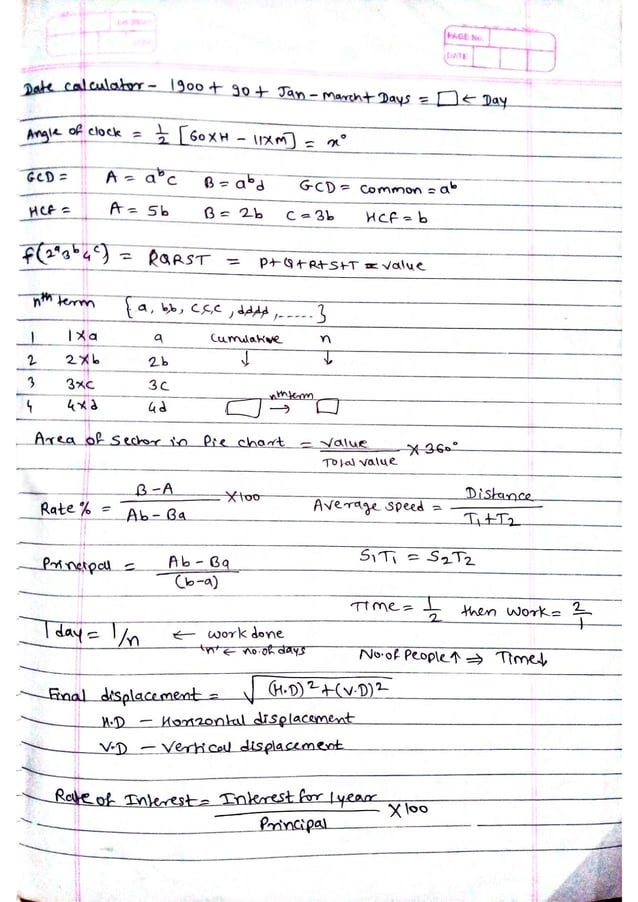 PAGE No.
DATE
Date calculator - 1900 + 90 + Jan - March + Days = □ ← Day
Angle of clock = 1/2 [60×H - 11×M] = x°
GCD = A = a^b c B = a^b d GCD = common = a^b
HCF = A = 5b B = 2b C = 3b HCF = b
f(2^a 3^b 4^c) = PQRST = P+Q+R+S+T = value
nth term { a, bb, ccc, dddd, ..... }
1 1×a a cumulative n
2 2×b 2b ↓ ↓
3 3×c 3c
4 4×d 4d □ nth term → □
Area of sector in Pie chart = value / Total value × 360°
Rate % = B-A / Ab-Ba × 100 Average speed = Distance / T₁+T₂
Principal = Ab-Ba / (b-a) S₁T₁ = S₂T₂
Time = 1/2 then work = 2/1
1 day = 1/n ← work done
'n' ← no. of days No. of People ↑ ⇒ Time ↓
Final displacement = √(H.D)2+(V.D)2
H.D - Horizontal displacement
V.D - Vertical displacement
Rate of Interest = Interest for 1 year / Principal × 100